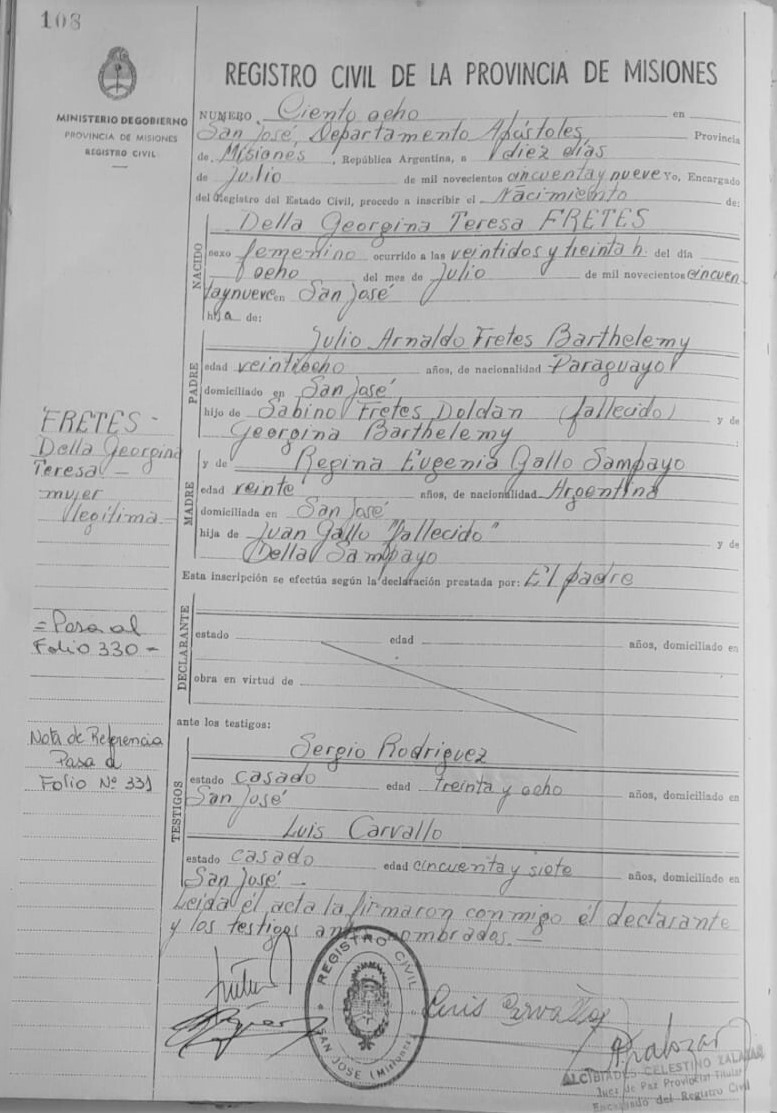 108
REGISTRO CIVIL DE LA PROVINCIA DE MISIONES
MINISTERIO DE GOBIERNO
PROVINCIA DE MISIONES
REGISTRO CIVIL
NUMERO Ciento ocho en
San José, Departamento Apóstoles, Provincia
de Misiones, República Argentina, a diez días
de Julio de mil novecientos cincuenta y nueve Yo, Encargado
del Registro del Estado Civil, procedo a inscribir el Nacimiento de:
NACIDO
Della Georgina Teresa FRETES
sexo femenino ocurrido a las veintidos y treinta h. del día
ocho del mes de Julio de mil novecientos cincuen
taynueve en San José
hija de:
PADRE
Julio Arnaldo Fretes Barthelemy
edad veintiocho años, de nacionalidad Paraguayo
domiciliado en San José
hijo de Sabino Fretes Doldan (fallecido) y de
Georgina Barthelemy
MADRE
y de Regina Eugenia Gallo Sampayo
edad veinte años, de nacionalidad Argentina
domiciliada en San José
hija de Juan Gallo "fallecido" y de
Della Sampayo
Esta inscripción se efectúa según la declaración prestada por: El padre
DECLARANTE
estado edad años, domiciliado en
obra en virtud de
ante los testigos:
TESTIGOS
Sergio Rodriguez
estado casado edad treinta y ocho años, domiciliado en
San José
Luis Carvallo
estado casado edad cincuenta y siete años, domiciliado en
San José —
Leida el acta la firmaron conmigo el declarante
y los testigos nombrados. —
FRETES -
Della Georgina
Teresa —
mujer
legitima —
= Pasa al
Folio 330 -
Nota de Referencia
Pasa a
Folio Nº 331
REGISTRO CIVIL
SAN JOSE (Misiones)
Luis Carvallo
ALCIBIADES CELESTINO ZALAZAR
Juez de Paz Provincial Titular
Encargado del Registro Civil